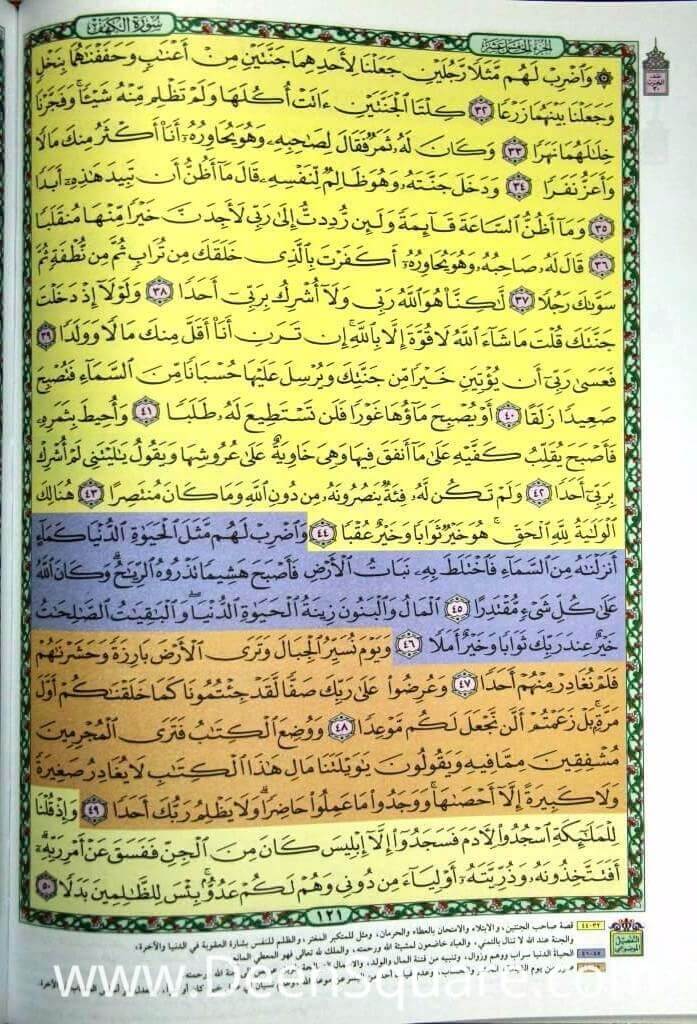 الجزء الخامس عشر
سورة الكهف
۞ وَاضْرِبْ لَهُم مَّثَلًا رَّجُلَيْنِ جَعَلْنَا لِأَحَدِهِمَا جَنَّتَيْنِ مِنْ أَعْنَٰبٍ وَحَفَفْنَٰهُمَا بِنَخْلٍ
وَجَعَلْنَا بَيْنَهُمَا زَرْعًا ٣٢ كِلْتَا الْجَنَّتَيْنِ ءَاتَتْ أُكُلَهَا وَلَمْ تَظْلِم مِّنْهُ شَيْـًٔا ۚ وَفَجَّرْنَا
خِلَٰلَهُمَا نَهَرًا ٣٣ وَكَانَ لَهُۥ ثَمَرٌ فَقَالَ لِصَٰحِبِهِۦ وَهُوَ يُحَاوِرُهُۥٓ أَنَا۠ أَكْثَرُ مِنكَ مَالًا
وَأَعَزُّ نَفَرًا ٣٤ وَدَخَلَ جَنَّتَهُۥ وَهُوَ ظَالِمٌ لِّنَفْسِهِۦ قَالَ مَآ أَظُنُّ أَن تَبِيدَ هَٰذِهِۦٓ أَبَدًا
٣٥ وَمَآ أَظُنُّ السَّاعَةَ قَآئِمَةً وَلَئِن رُّدِدتُّ إِلَىٰ رَبِّي لَأَجِدَنَّ خَيْرًا مِّنْهَا مُنقَلَبًا
٣٦ قَالَ لَهُۥ صَاحِبُهُۥ وَهُوَ يُحَاوِرُهُۥٓ أَكَفَرْتَ بِالَّذِي خَلَقَكَ مِن تُرَابٍ ثُمَّ مِن نُّطْفَةٍ ثُمَّ
سَوَّىٰكَ رَجُلًا ٣٧ لَّٰكِنَّا۠ هُوَ اللَّهُ رَبِّي وَلَآ أُشْرِكُ بِرَبِّيٓ أَحَدًا ٣٨ وَلَوْلَآ إِذْ دَخَلْتَ
جَنَّتَكَ قُلْتَ مَا شَآءَ اللَّهُ لَا قُوَّةَ إِلَّا بِاللَّهِ ۚ إِن تَرَنِ أَنَا۠ أَقَلَّ مِنكَ مَالًا وَوَلَدًا ٣٩
فَعَسَىٰ رَبِّيٓ أَن يُؤْتِيَنِ خَيْرًا مِّن جَنَّتِكَ وَيُرْسِلَ عَلَيْهَا حُسْبَانًا مِّنَ السَّمَآءِ فَتُصْبِحَ
صَعِيدًا زَلَقًا ٤٠ أَوْ يُصْبِحَ مَآؤُهَا غَوْرًا فَلَن تَسْتَطِيعَ لَهُۥ طَلَبًا ٤١ وَأُحِيطَ بِثَمَرِهِۦ
فَأَصْبَحَ يُقَلِّبُ كَفَّيْهِ عَلَىٰ مَآ أَنفَقَ فِيهَا وَهِيَ خَاوِيَةٌ عَلَىٰ عُرُوشِهَا وَيَقُولُ يَٰلَيْتَنِي لَمْ أُشْرِكْ
بِرَبِّيٓ أَحَدًا ٤٢ وَلَمْ تَكُن لَّهُۥ فِئَةٌ يَنصُرُونَهُۥ مِن دُونِ اللَّهِ وَمَا كَانَ مُنتَصِرًا ٤٣ هُنَالِكَ
الْوَلَٰيَةُ لِلَّهِ الْحَقِّ ۚ هُوَ خَيْرٌ ثَوَابًا وَخَيْرٌ عُقْبًا ٤٤ وَاضْرِبْ لَهُم مَّثَلَ الْحَيَوٰةِ الدُّنْيَا كَمَآءٍ
أَنزَلْنَٰهُ مِنَ السَّمَآءِ فَاخْتَلَطَ بِهِۦ نَبَاتُ الْأَرْضِ فَأَصْبَحَ هَشِيمًا تَذْرُوهُ الرِّيَٰحُ ۗ وَكَانَ اللَّهُ
عَلَىٰ كُلِّ شَيْءٍ مُّقْتَدِرًا ٤٥ الْمَالُ وَالْبَنُونَ زِينَةُ الْحَيَوٰةِ الدُّنْيَا ۖ وَالْبَٰقِيَٰتُ الصَّٰلِحَٰتُ
خَيْرٌ عِندَ رَبِّكَ ثَوَابًا وَخَيْرٌ أَمَلًا ٤٦ وَيَوْمَ نُسَيِّرُ الْجِبَالَ وَتَرَى الْأَرْضَ بَارِزَةً وَحَشَرْنَٰهُمْ
فَلَمْ نُغَادِرْ مِنْهُمْ أَحَدًا ٤٧ وَعُرِضُوا عَلَىٰ رَبِّكَ صَفًّا لَّقَدْ جِئْتُمُونَا كَمَا خَلَقْنَٰكُمْ أَوَّلَ
مَرَّةٍ ۚ بَلْ زَعَمْتُمْ أَلَّن نَّجْعَلَ لَكُم مَّوْعِدًا ٤٨ وَوُضِعَ الْكِتَٰبُ فَتَرَى الْمُجْرِمِينَ
مُشْفِقِينَ مِمَّا فِيهِ وَيَقُولُونَ يَٰوَيْلَتَنَا مَالِ هَٰذَا الْكِتَٰبِ لَا يُغَادِرُ صَغِيرَةً
وَلَا كَبِيرَةً إِلَّآ أَحْصَىٰهَا ۚ وَوَجَدُوا مَا عَمِلُوا حَاضِرًا ۗ وَلَا يَظْلِمُ رَبُّكَ أَحَدًا ٤٩ وَإِذْ قُلْنَا
لِلْمَلَٰٓئِكَةِ اسْجُدُوا لِـَٔادَمَ فَسَجَدُوٓا إِلَّآ إِبْلِيسَ كَانَ مِنَ الْجِنِّ فَفَسَقَ عَنْ أَمْرِ رَبِّهِۦٓ ۗ
أَفَتَتَّخِذُونَهُۥ وَذُرِّيَّتَهُۥٓ أَوْلِيَآءَ مِن دُونِي وَهُمْ لَكُمْ عَدُوٌّۢ ۚ بِئْسَ لِلظَّٰلِمِينَ بَدَلًا ٥٠
١٢١
التفصيل الموضوعي
٣٢-٤٤ قصة صاحب الجنتين، والابتلاء والامتحان بالعطاء والحرمان، ومثل للمتكبر المغتر، والظلم للنفس بشارة العقوبة في الدنيا والآخرة،
والجنة عند الله لا تنال بالتمني، والعباد خاضعون لمشيئة الله ورحمته، والملك لله تعالى فهو المعطي المانع.
٤٥-٤٦ الحياة الدنيا سراب ووهم وزوال، وتنبيه من فتنة المال والولد،
www.DeenSquare.com